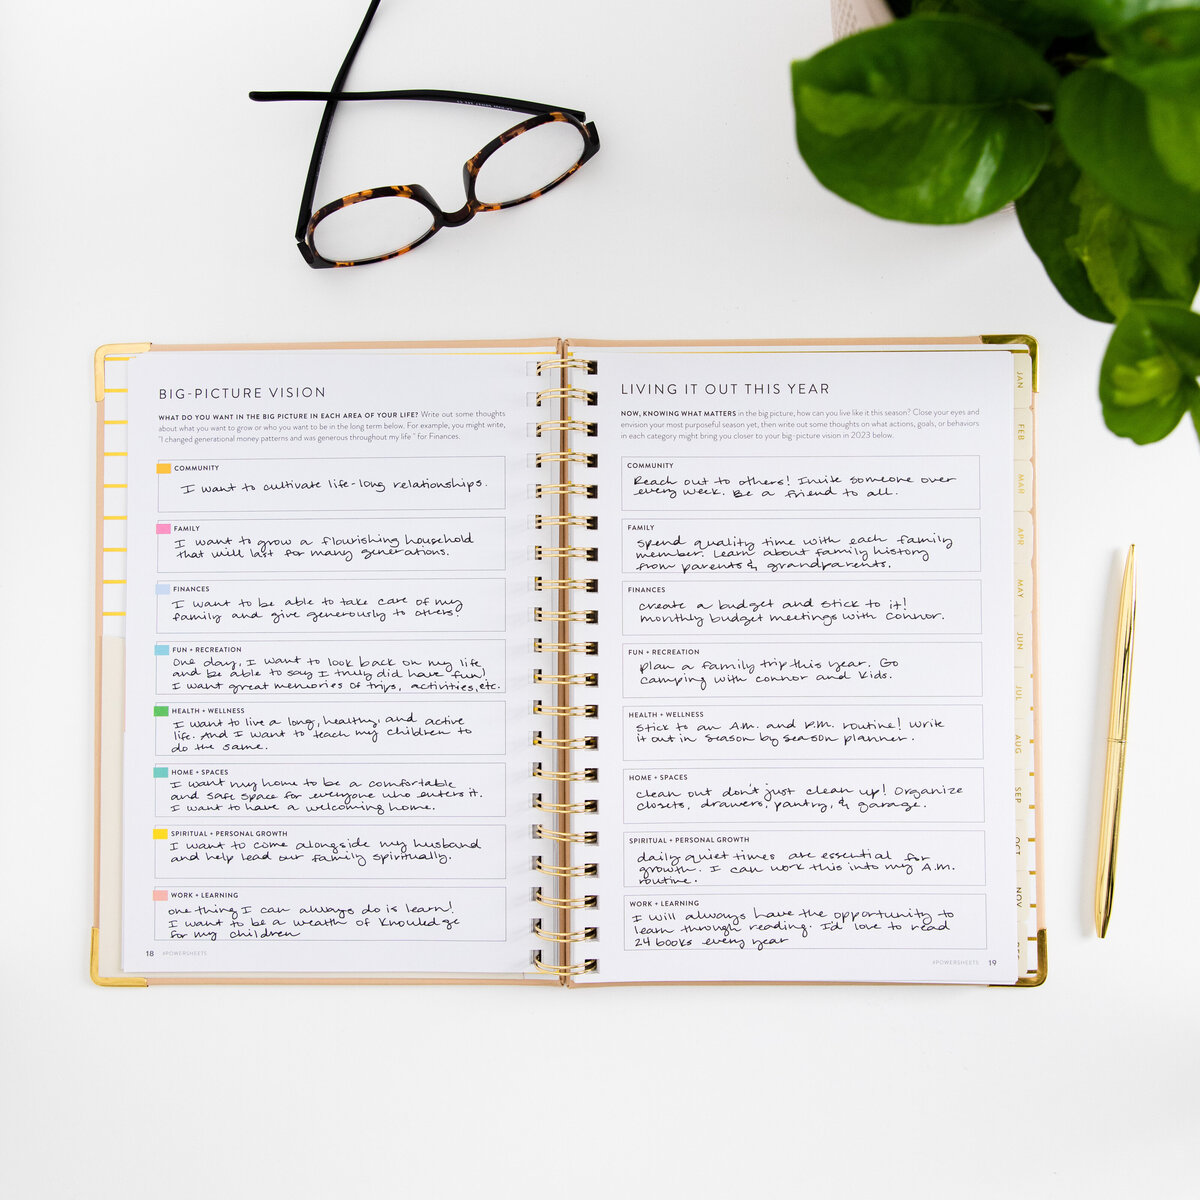 BIG-PICTURE VISION
WHAT DO YOU WANT IN THE BIG PICTURE IN EACH AREA OF YOUR LIFE? Write out some thoughts
about what you want to grow or who you want to be in the long term below. For example, you might write,
"I changed generational money patterns and was generous throughout my life " for Finances.
COMMUNITY
I want to cultivate life-long relationships.
FAMILY
I want to grow a flourishing household
that will last for many generations.
FINANCES
I want to be able to take care of my
family and give generously to others!
FUN + RECREATION
One day, I want to look back on my life
and be able to say I truly did have fun!
I want great memories of trips, activities, etc.
HEALTH + WELLNESS
I want to live a long, healthy, and active
life. And I want to teach my children to
do the same.
HOME + SPACES
I want my home to be a comfortable
and safe space for everyone who enters it.
I want to have a welcoming home.
SPIRITUAL + PERSONAL GROWTH
I want to come alongside my husband
and help lead our family spiritually.
WORK + LEARNING
one thing I can always do is learn!
I want to be a wealth of knowledge
for my children
18 #POWERSHEETS
LIVING IT OUT THIS YEAR
NOW, KNOWING WHAT MATTERS in the big picture, how can you live like it this season? Close your eyes and
envision your most purposeful season yet, then write out some thoughts on what actions, goals, or behaviors
in each category might bring you closer to your big-picture vision in 2023 below.
COMMUNITY
Reach out to others! Invite someone over
every week. Be a friend to all.
FAMILY
spend quality time with each family
member. Learn about family history
from parents & grandparents.
FINANCES
create a budget and stick to it!
monthly budget meetings with connor.
FUN + RECREATION
plan a family trip this year. Go
camping with connor and kids.
HEALTH + WELLNESS
stick to an A.M. and P.M. routine! Write
it out in season by season planner.
HOME + SPACES
clean out don't just clean up! Organize
closets, drawers, pantry, & garage.
SPIRITUAL + PERSONAL GROWTH
daily quiet times are essential for
growth. I can work this into my A.M.
routine.
WORK + LEARNING
I will always have the opportunity to
learn through reading. I'd love to read
24 books every year
#POWERSHEETS 19
JAN
FEB
MAR
APR
MAY
JUN
JUL
AUG
SEP
OCT
NOV